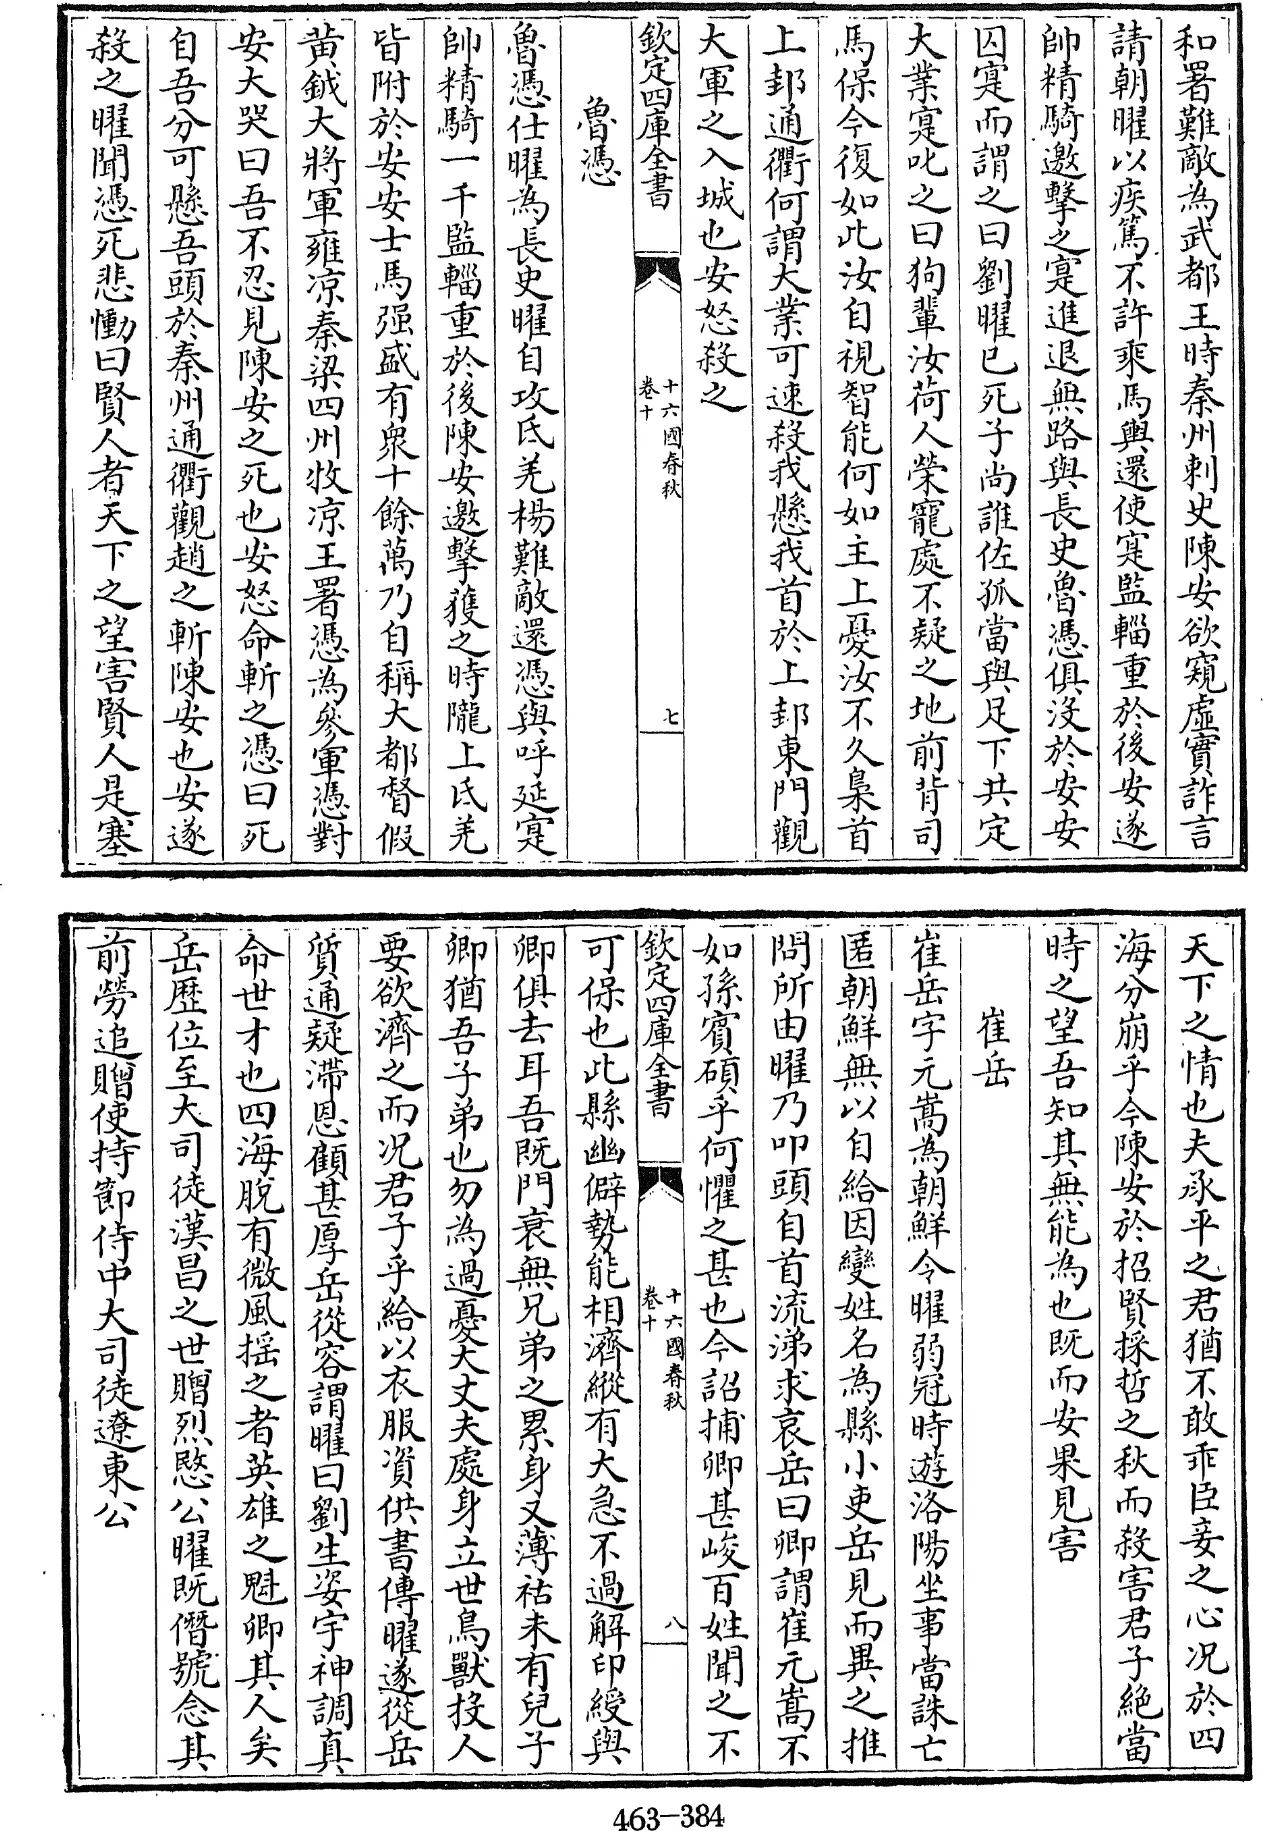 和署難敵為武都王時秦州刺史陳安欲窺虛實詐言
請朝曜以疾篤不許乘馬輿還使寔監輜重於後安遂
帥精騎邀擊之寔進退無路與長史魯憑俱沒於安安
囚寔而謂之曰劉曜已死子尚誰佐孤當與足下共定
大業寔叱之曰狗輩汝荷人榮寵處不疑之地前背司
馬保今復如此汝自視智能何如主上憂汝不久梟首
上邽通衢何謂大業可速殺我懸我首於上邽東門觀
大軍之入城也安怒殺之
欽定四庫全書
十六國春秋
卷十
七
魯憑
魯憑仕曜為長史曜自攻氐羌楊難敵還憑與呼延寔
帥精騎一千監輜重於後陳安邀擊獲之時隴上氐羌
皆附於安安士馬强盛有衆十餘萬乃自稱大都督假
黃鉞大將軍雍凉秦梁四州牧凉王署憑為參軍憑對
安大哭曰吾不忍見陳安之死也安怒命斬之憑曰死
自吾分可懸吾頭於秦州通衢觀趙之斬陳安也安遂
殺之曜聞憑死悲慟曰賢人者天下之望害賢人是塞
天下之情也夫承平之君猶不敢乖臣妾之心况於四
海分崩乎今陳安於招賢採哲之秋而殺害君子絕當
時之望吾知其無能為也既而安果見害
崔岳
崔岳字元嵩為朝鮮令曜弱冠時遊洛陽坐事當誅亡
匿朝鮮無以自給因變姓名為縣小吏岳見而異之推
問所由曜乃叩頭自首流涕求哀岳曰卿謂崔元嵩不
如孫賓碩乎何懼之甚也今詔捕卿甚峻百姓聞之不
欽定四庫全書
十六國春秋
卷十
八
可保也此縣幽僻勢能相濟縱有大急不過解印綬與
卿俱去耳吾既門衰無兄弟之累身又薄祜未有兒子
卿猶吾子弟也勿為過憂大丈夫處身立世鳥獸投人
要欲濟之而况君子乎給以衣服資供書傳曜遂從岳
質通疑滯恩顧甚厚岳從容謂曜曰劉生姿宇神調真
命世才也四海脫有微風搖之者英雄之魁卿其人矣
岳歷位至大司徒漢昌之世贈烈愍公曜既僭號念其
前勞追贈使持節侍中大司徒遼東公
463-384